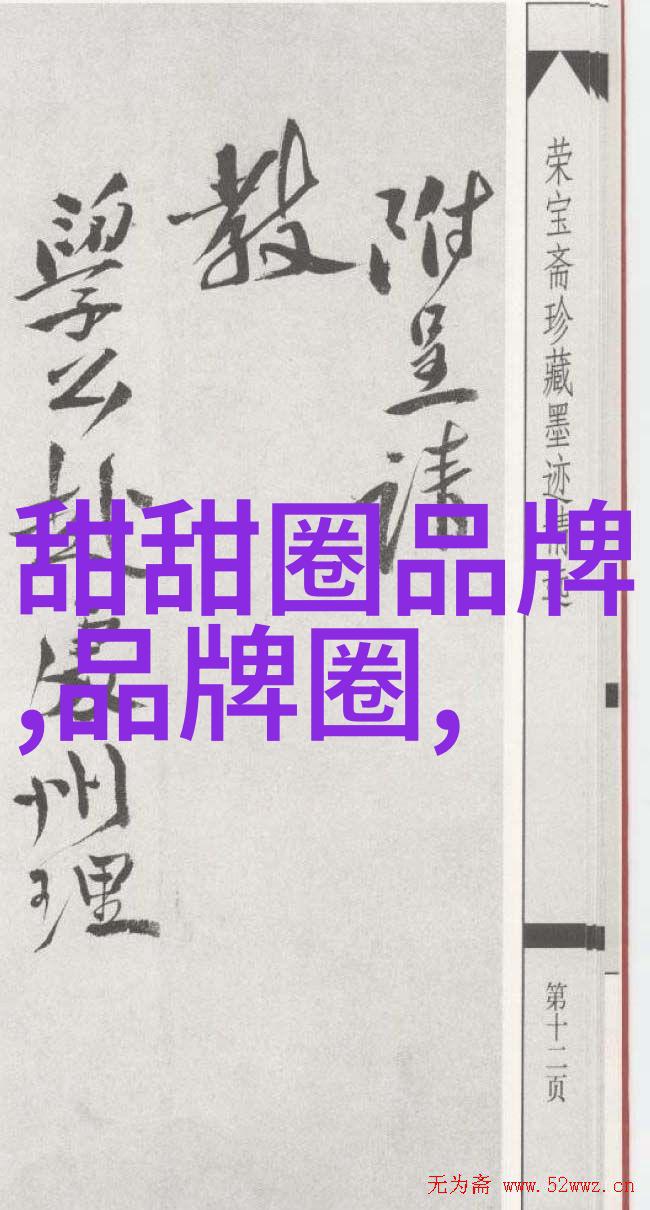 荣宝斋珍藏墨迹精选
第十二页
附呈请
教
学公赴处州理
甜甜圈品牌
,品牌圈,
无为斋 www.52wwz.cn